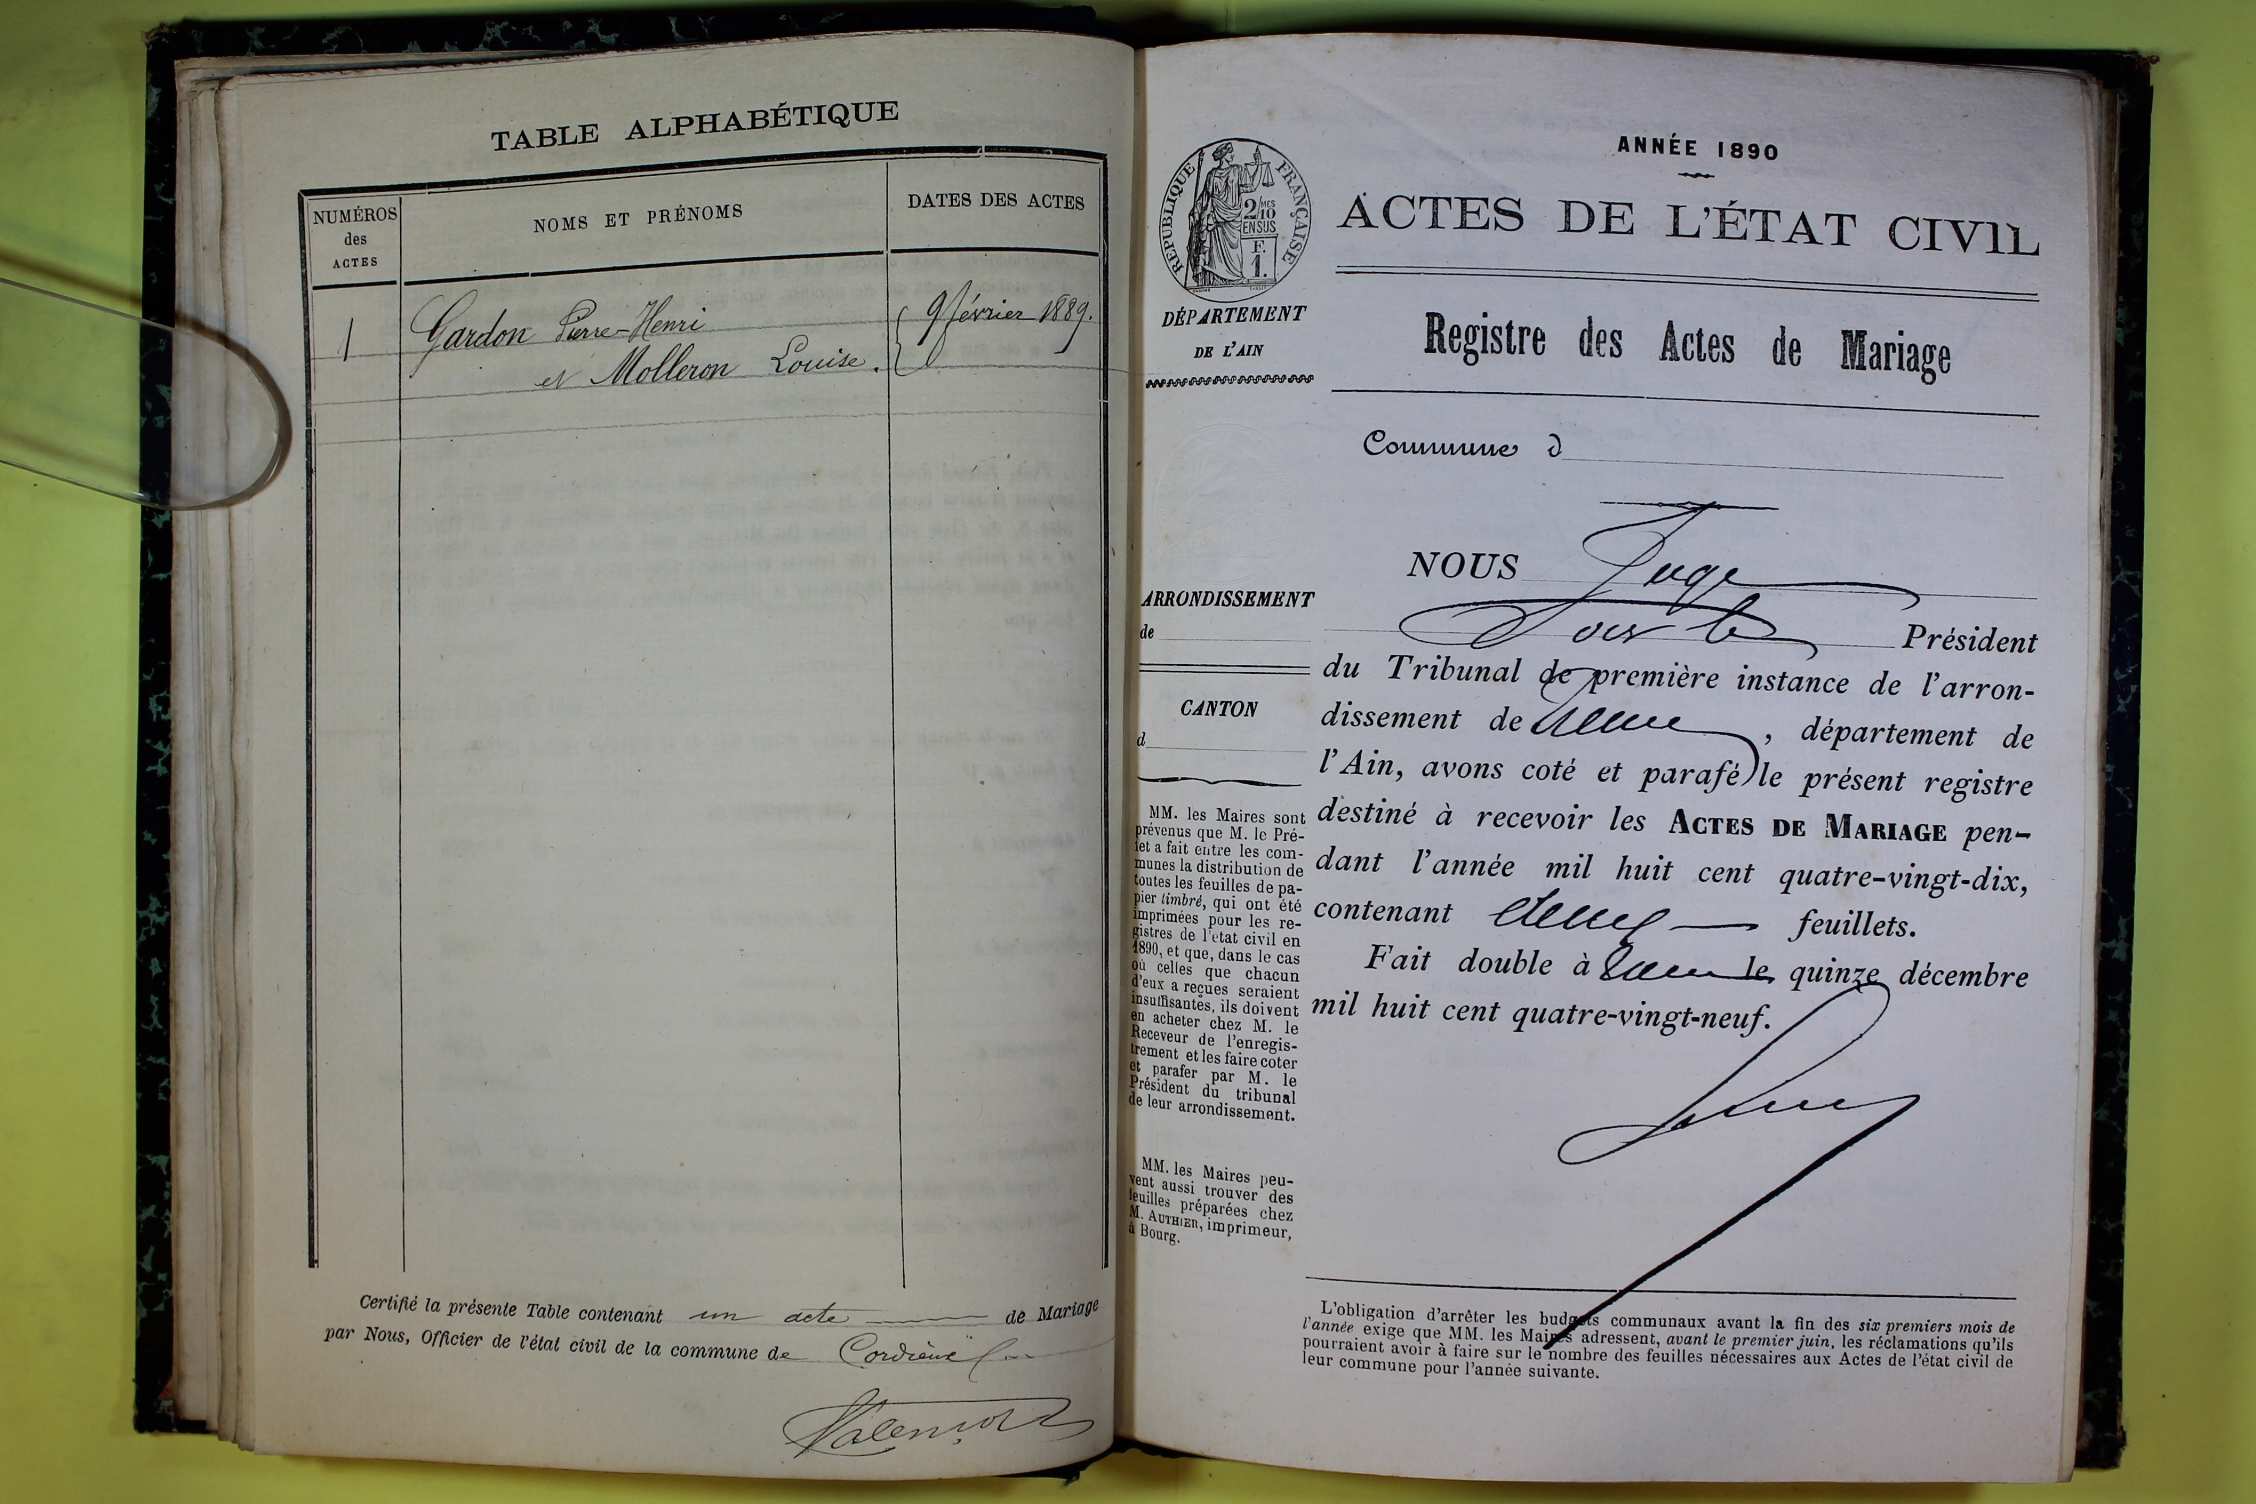 TABLE ALPHABÉTIQUE
NUMÉROS
des
ACTES
NOMS ET PRÉNOMS
DATES DES ACTES
1
Gardon Pierre-Henri
9 février 1889.
et Molleron Louise.
Certifié la présente Table contenant un acte de Mariage
par Nous, Officier de l'état civil de la commune de
RÉPUBLIQUE FRANÇAISE
2/10
MES
EN SUS
F.
1.
DÉPARTEMENT
DE L'AIN
ARRONDISSEMENT
de
CANTON
d
MM. les Maires sont
prévenus que M. le Pré-
fet a fait entre les com-
munes la distribution de
toutes les feuilles de pa-
pier timbré, qui ont été
imprimées pour les re-
gistres de l'état civil en
1890, et que, dans le cas
où celles que chacun
d'eux a reçues seraient
insuffisantes, ils doivent
en acheter chez M. le
Receveur de l'enregis-
trement et les faire coter
et parafer par M. le
Président du tribunal
de leur arrondissement.
MM. les Maires peu-
vent aussi trouver des
feuilles préparées chez
M. AUTHIER, imprimeur,
à Bourg.
ANNÉE 1890
ACTES DE L'ÉTAT CIVIL
Registre des Actes de Mariage
Commune d
NOUS Juge
Pour le Président
du Tribunal de première instance de l'arron-
dissement de , département de
l'Ain, avons coté et parafé le présent registre
destiné à recevoir les ACTES DE MARIAGE pen-
dant l'année mil huit cent quatre-vingt-dix,
contenant feuillets.
Fait double à le quinze décembre
mil huit cent quatre-vingt-neuf.
L'obligation d'arrêter les budgets communaux avant la fin des six premiers mois de
l'année exige que MM. les Maires adressent, avant le premier juin, les réclamations qu'ils
pourraient avoir à faire sur le nombre des feuilles nécessaires aux Actes de l'état civil de
leur commune pour l'année suivante.